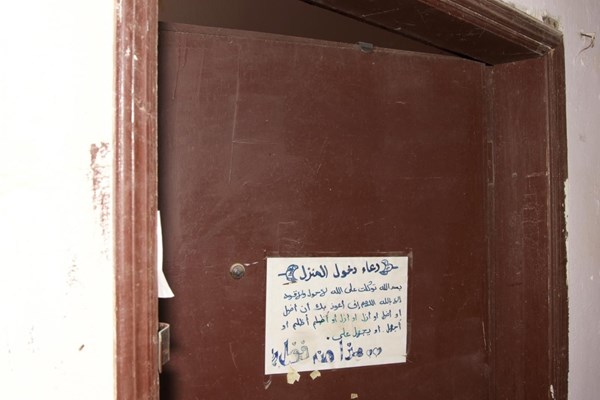 دعاء دخول المنزل
بسم الله توكلت على الله لاحول ولاقوة
الا بالله اللهم إني أعوذ بك أن أضل
أو أضل أو أزل او ازل او أظلم أظلم او
أجهل او يجهل علي .
من